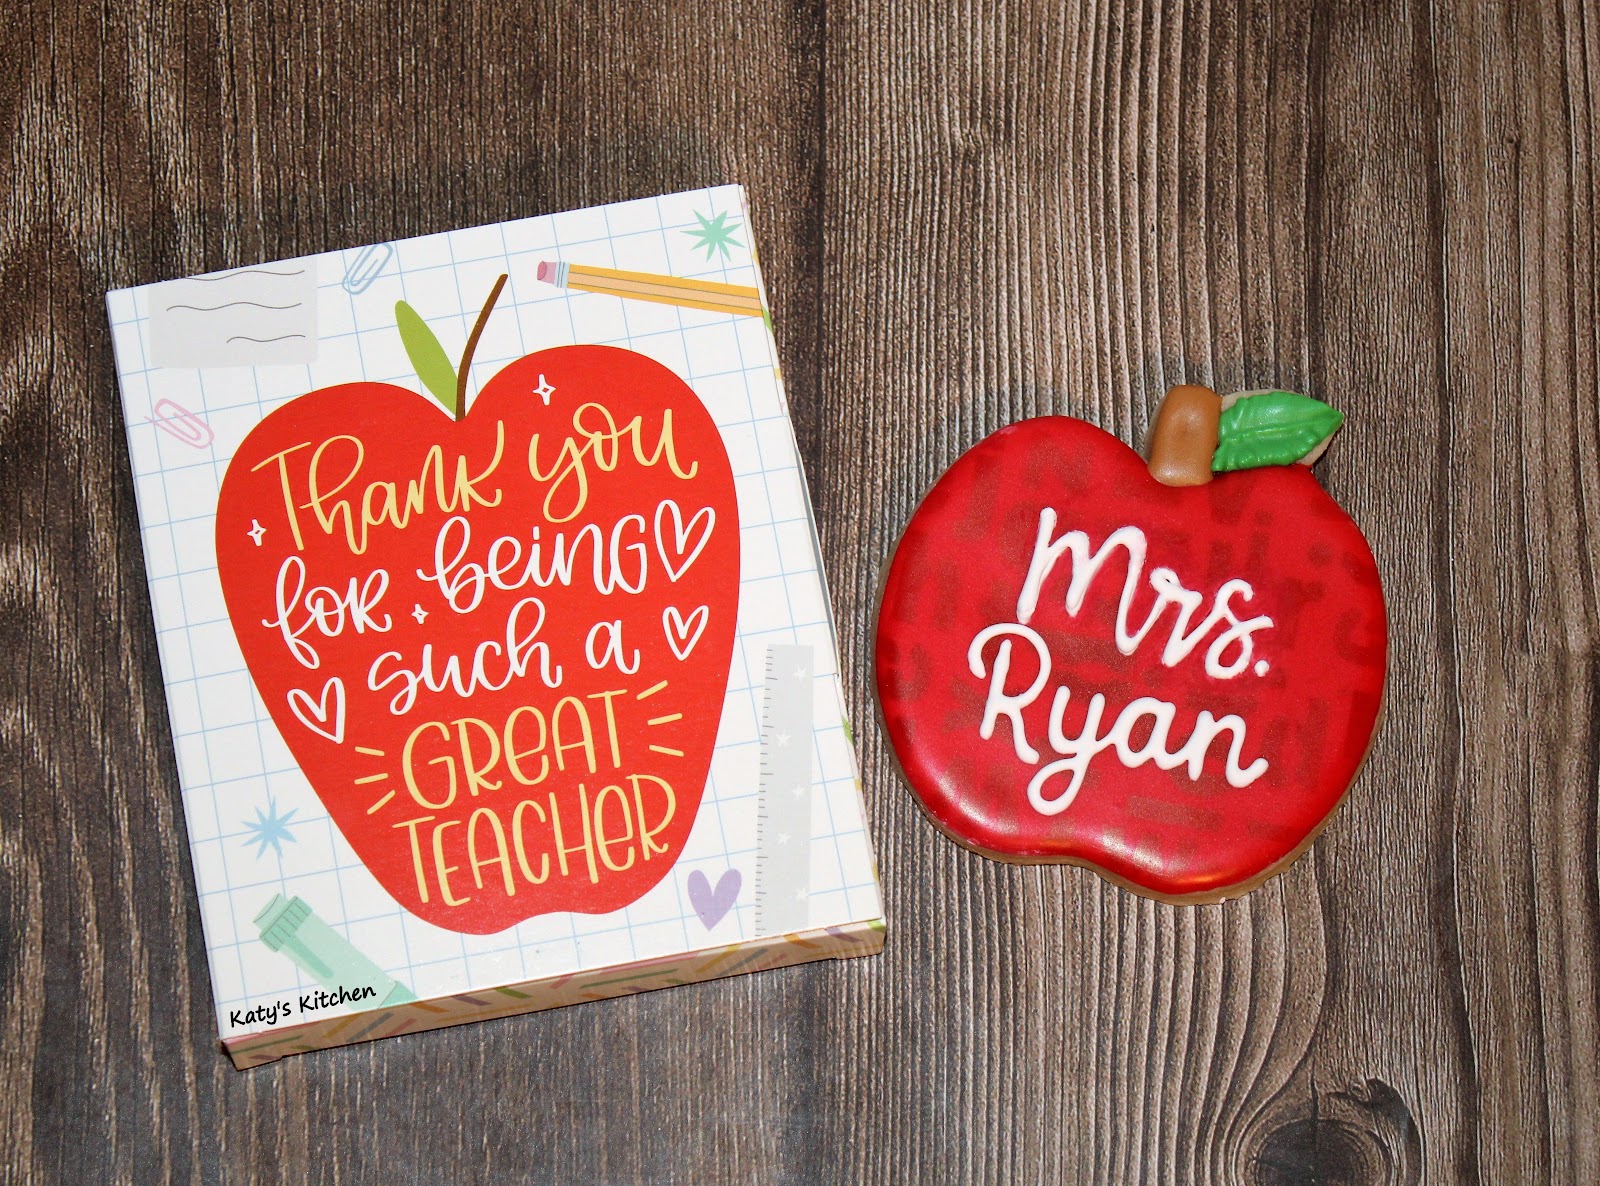 Thank you
for being
such a
GREAT
TEACHER
Katy's Kitchen
Mrs.
Ryan